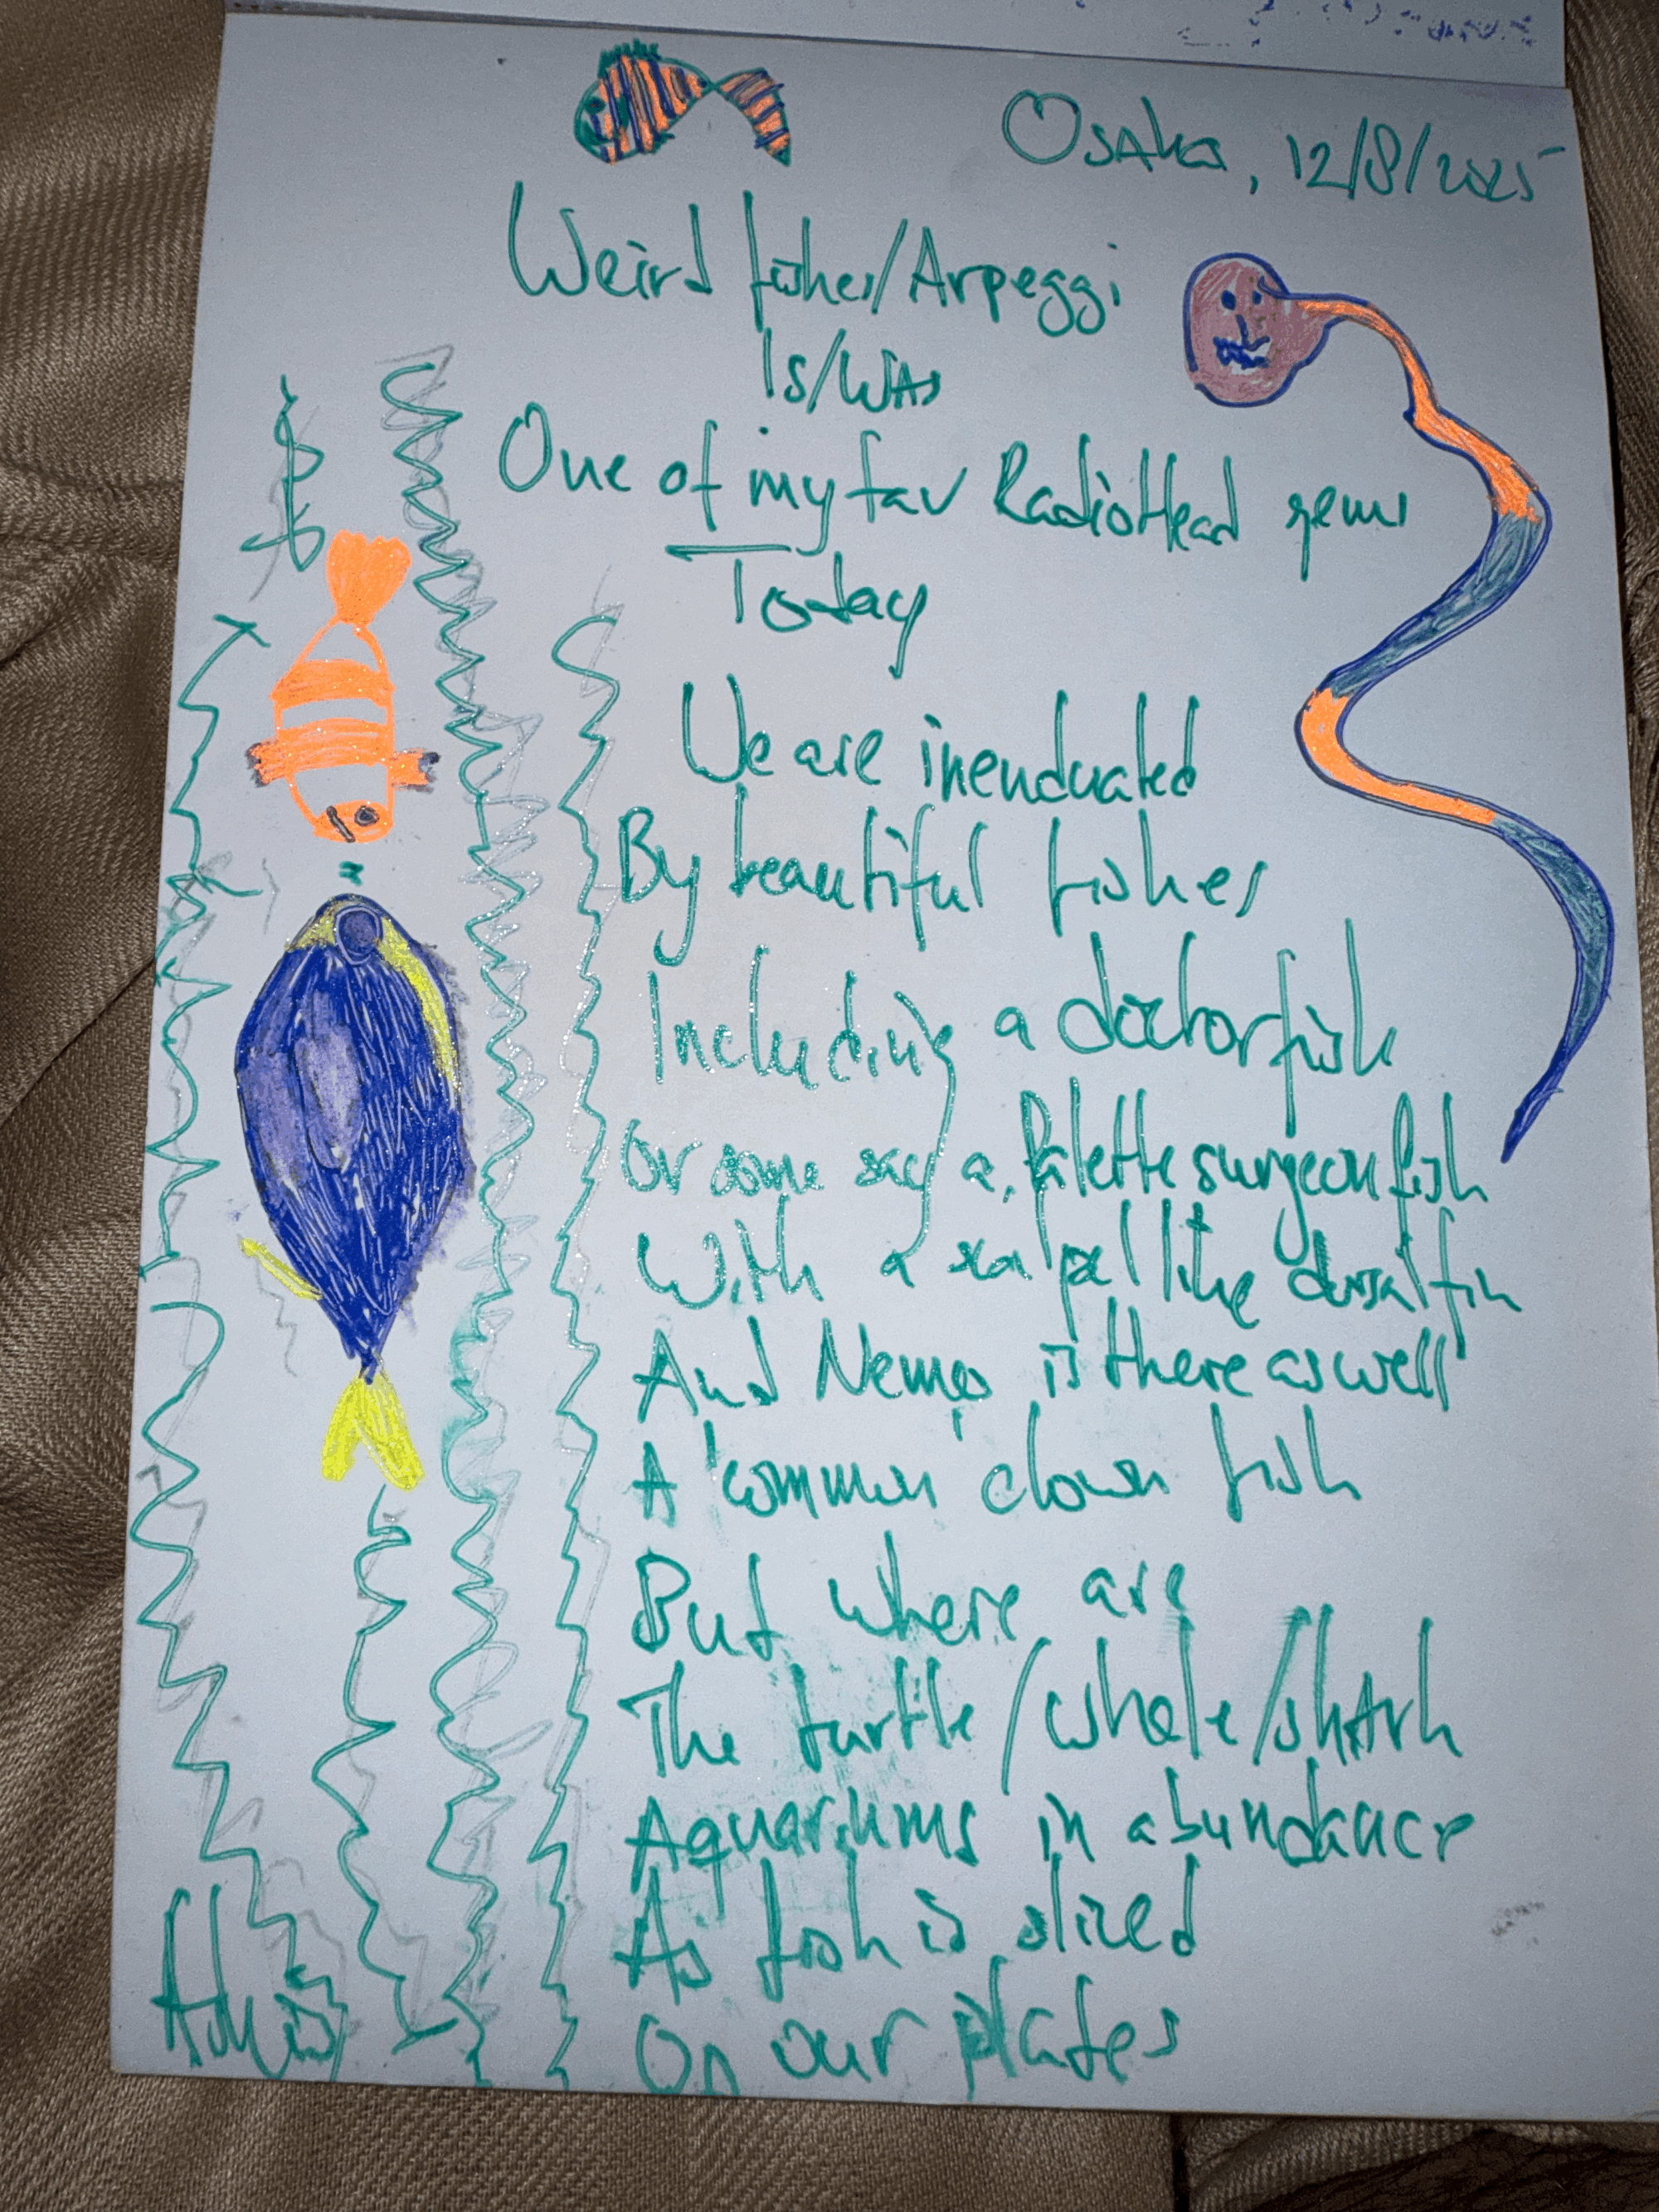 Osaka, 12/8/2025
Weird fishes/Arpeggi
Is/WAs
One of my fav RadioHead gems
Today
We are inenduated
By beautiful fishes
Including a doctorfish
Or some say a Palette surgeonfish
With a scalpellike dorsal fin
And Nemo is there as well
A 'common' clown fish
But where are
The turtle/whale/shArk
Aquariums in abundance
As fish is sliced
On our plates